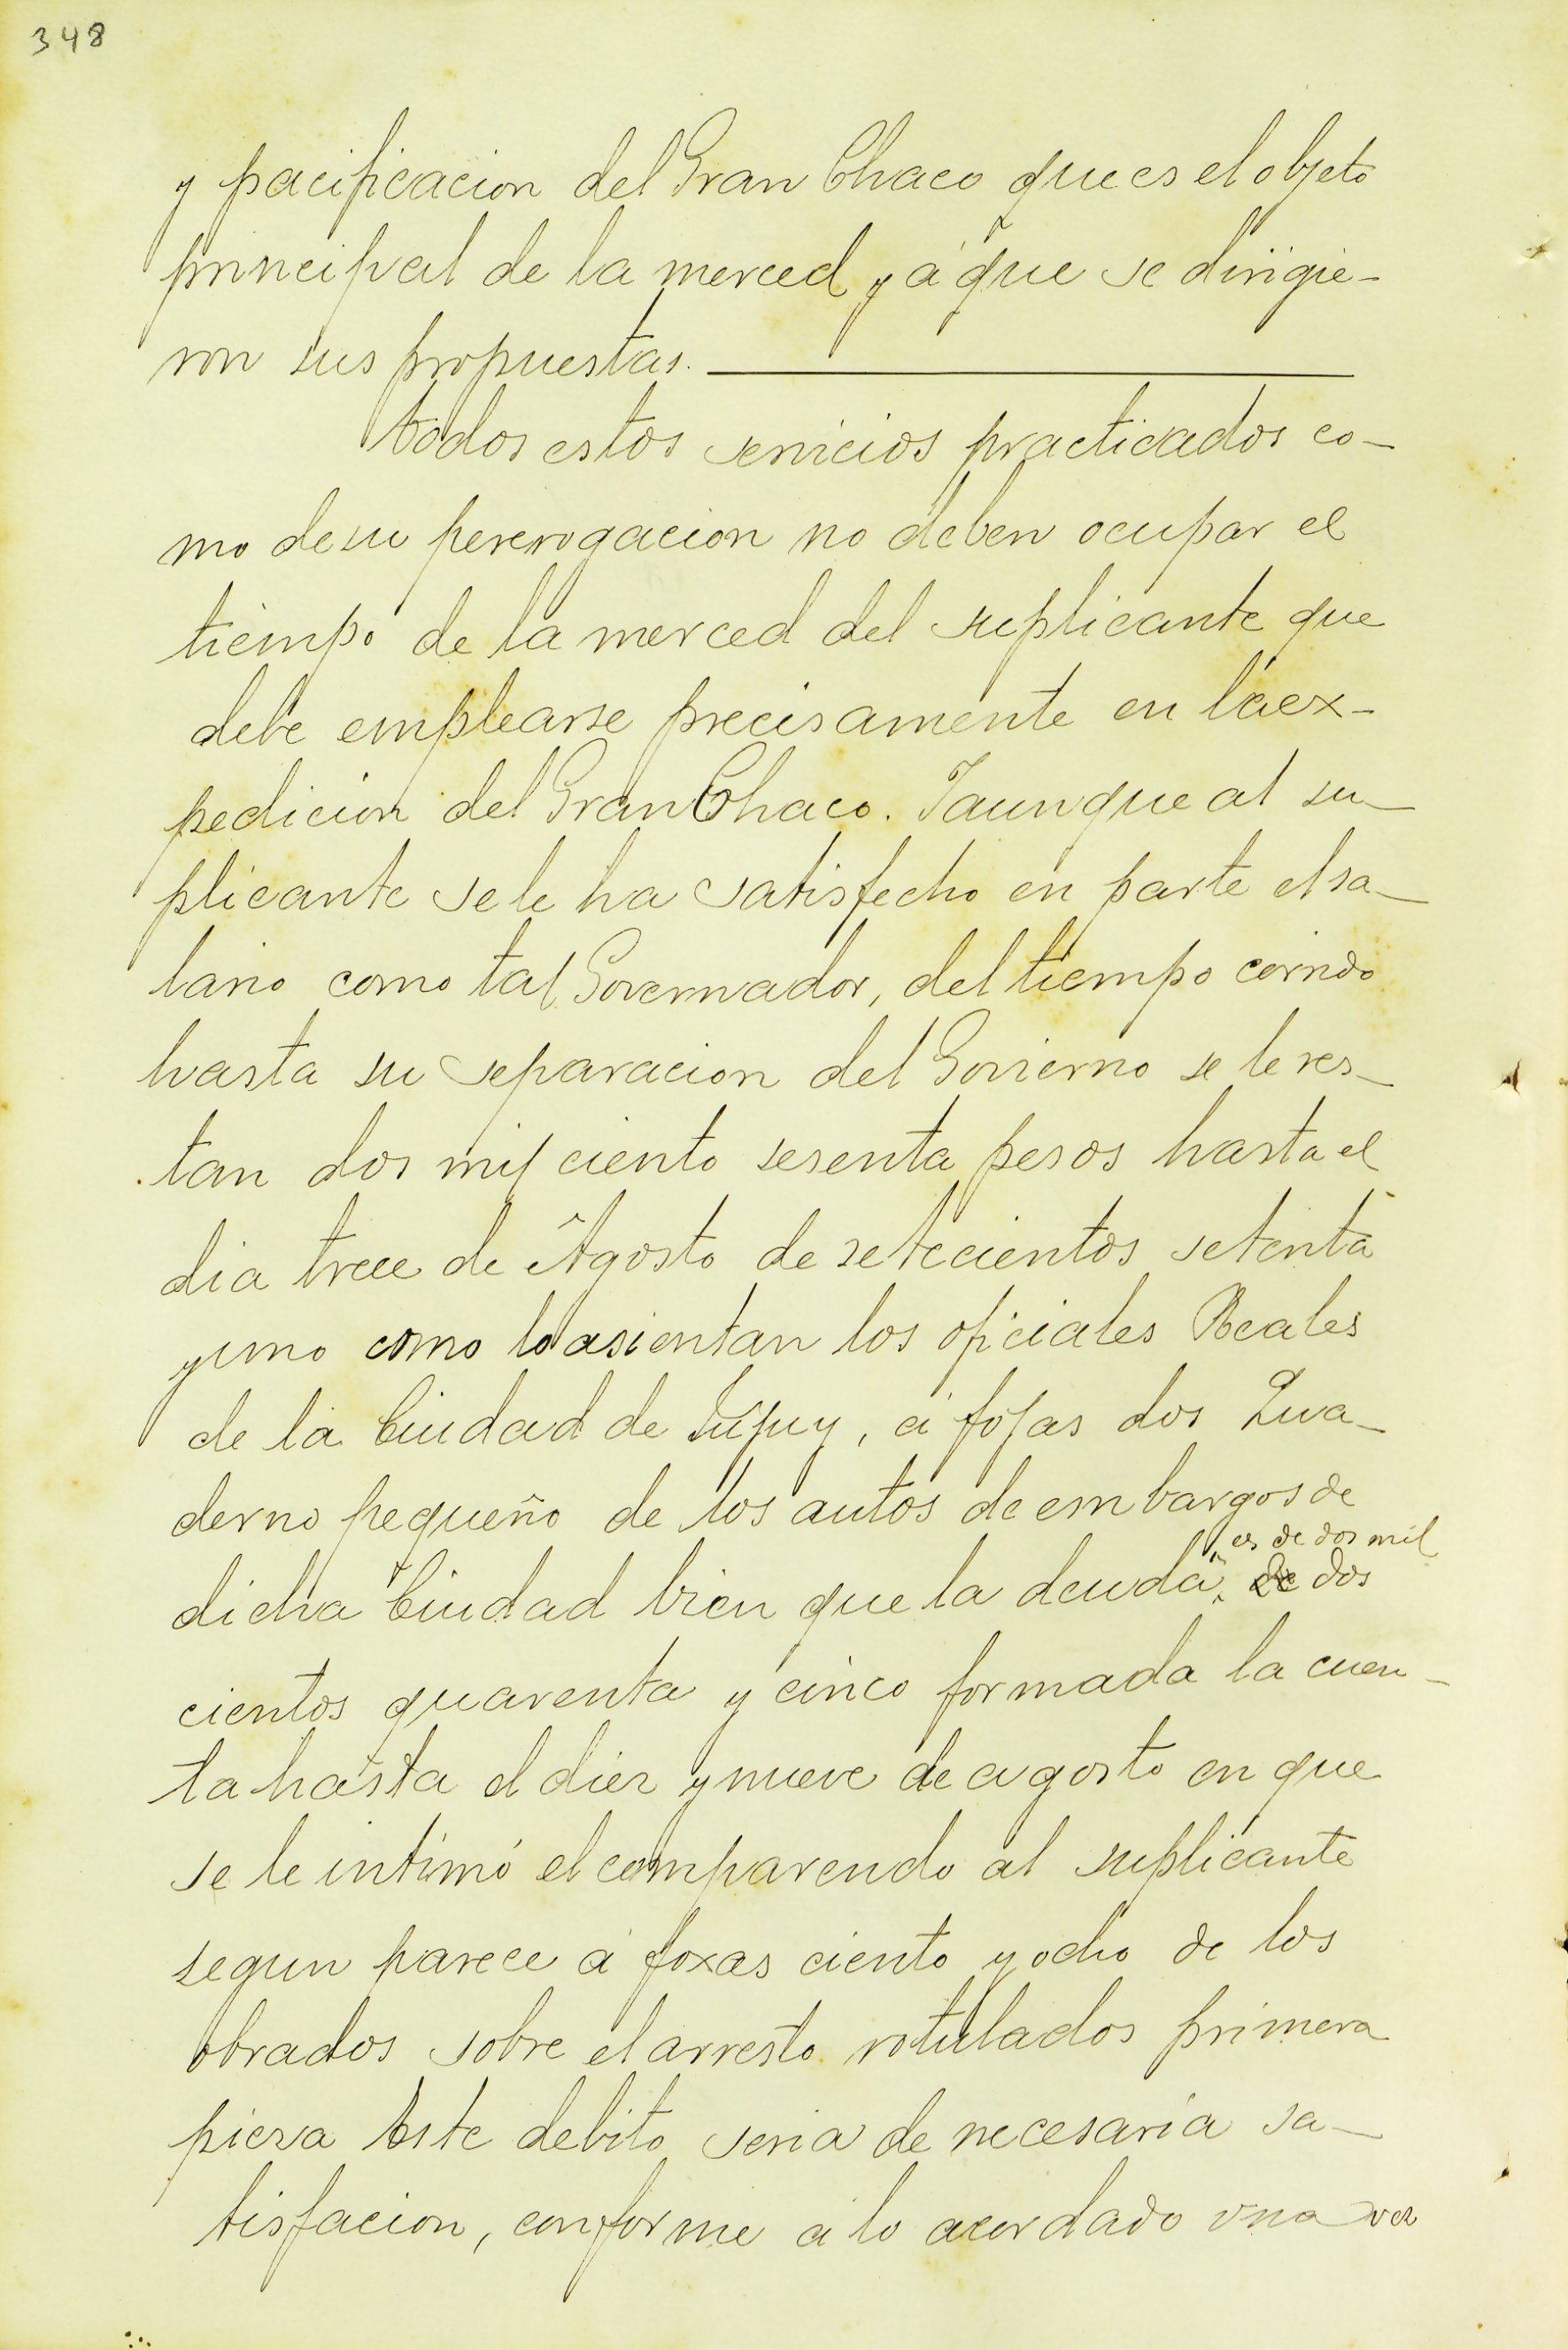 348
y pacificacion del Gran Chaco que es el objeto
principal de la merced y á que se dirigie-
ron sus propuestas.
todos estos servicios practicados co-
mo de su pererogacion no deben ocupar el
tiempo de la merced del suplicante que
debe emplearse precisamente en la ex-
pedicion del Gran Chaco. Y aunque al su-
plicante se le ha satisfecho en parte el sa-
lario como tal Governador, del tiempo corrido
hasta su separacion del Govierno se le res-
tan dos mil ciento sesenta pesos hasta el
dia trece de Agosto de setecientos setenta
y uno como lo asientan los oficiales Reales
de la Ciudad de Jujuy, á fojas dos Qua-
derno pequeño de los autos de embargos de
dicha Ciudad bien que la deuda es de dos mil
de dos
cientos quarenta y cinco formada la cuen-
ta hasta el diez y nueve de agosto en que
se le intimó el comparendo al suplicante
segun parece á foxas ciento y ocho de los
obrados sobre el arresto rotulados primera
pieza Este debito seria de necesaria sa-
tisfacion, conforme a lo acordado una vez